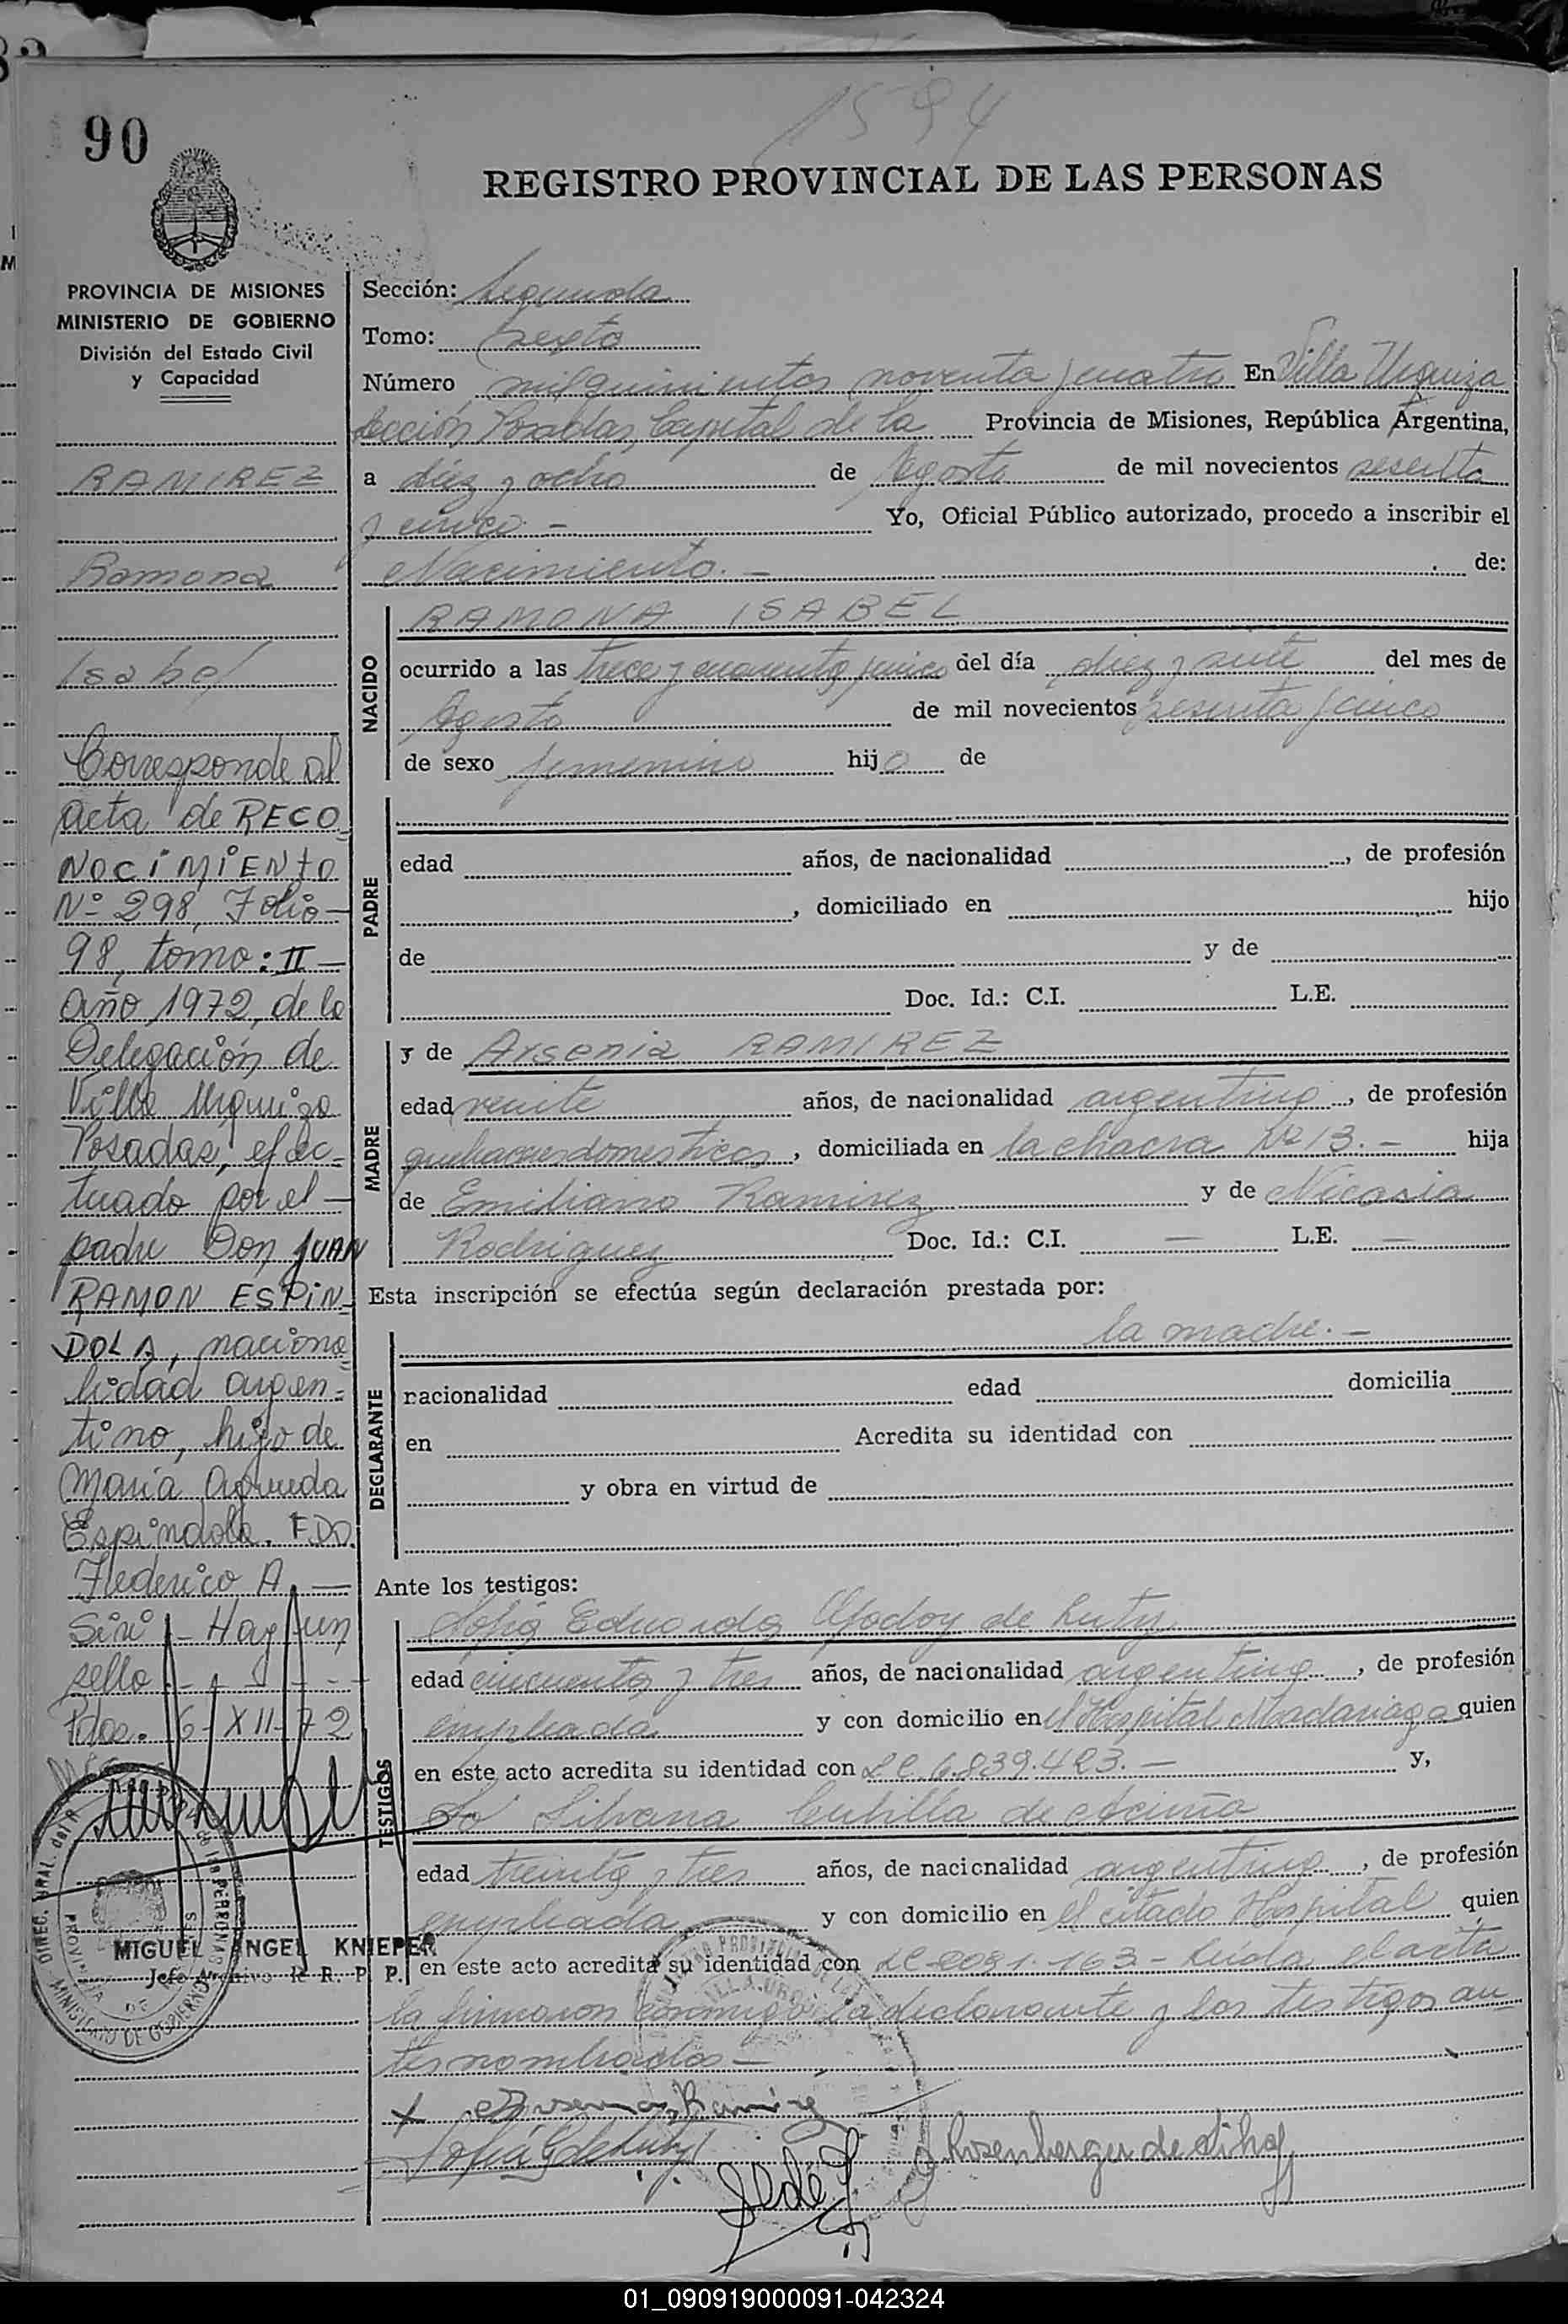 1594
90
REGISTRO PROVINCIAL DE LAS PERSONAS
PROVINCIA DE MISIONES
MINISTERIO DE GOBIERNO
División del Estado Civil
y Capacidad
RAMIREZ
Ramona
Isabel
Corresponde al
acta de RECO
NOCIMIENTO
Nº 298, Folio
98, tomo: II
año 1972, de la
Delegación de
Villa Urquiza
Posadas, efec-
tuado por el
padre Don JUAN
RAMON ESPIN
DOLA, naciona
lidad argen-
tino, hijo de
Maria Agueda
Espindola. FDO
Federico A.
Siri - Hay un
sello
Pdas. 6-XII-72
MIGUEL ANGEL KNIEPER
Jefe Archivo R. R. P. P.
Sección: Segunda
Tomo: Sexto
Número mil quinientos noventa y cuatro En Villa Urquiza
Sección Posadas, Capital de la Provincia de Misiones, República Argentina,
a diez y ocho de Agosto de mil novecientos sesenta
y cinco.- Yo, Oficial Público autorizado, procedo a inscribir el
Nacimiento.- de:
NACIDO
RAMONA ISABEL
ocurrido a las trece y cuarenta y cinco del día diez y siete del mes de
Agosto de mil novecientos sesenta y cinco
de sexo femenino hija de
PADRE
edad años, de nacionalidad , de profesión
, domiciliado en hijo
de y de
Doc. Id.: C.I. L.E.
MADRE
y de Arsenia RAMIREZ
edad veinte años, de nacionalidad argentina, de profesión
quehaceres domesticos, domiciliada en la chacra Nº 13.- hija
de Emiliano Ramirez y de Nicasia
Rodriguez Doc. Id.: C.I. — L.E. —
Esta inscripción se efectúa según declaración prestada por:
la madre.-
DECLARANTE
nacionalidad edad domicilia
en Acredita su identidad con
y obra en virtud de
Ante los testigos:
TESTIGOS
Sofia Eduarda Godoy de Luty
edad cincuenta y tres años, de nacionalidad argentina, de profesión
empleada y con domicilio en el Hospital Madariaga quien
en este acto acredita su identidad con LC. 6.839.423.- y,
Silvana Cubilla de Acuña
edad treinta y tres años, de nacionalidad argentina, de profesión
empleada y con domicilio en el citado Hospital quien
en este acto acredita su identidad con LC-2081.163- Leida el acta
la firmaron conmigo la declarante y los testigos an
tes nombrados -
x Arsenia Ramirez
Sofia G de Luty
Rosenberger de
01_090919000091-042324